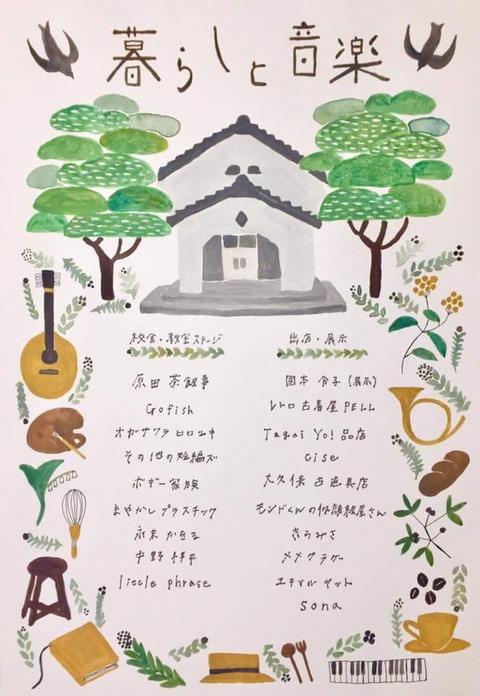 暮らしと音楽
校舎・教室ステージ
原田茶飯事
Gofish
オガサワラヒロユキ
その他の短編ズ
ボギー家族
まやかしプラスチック
中野
little phrase
出店・展示
岡本 令子(展示)
レトロ古着屋PELL
Tagai Yo!品店
cise
大久保古道具店
モンドくんの似顔絵屋さん
きろみさ
メメクラゲ
ユキマルヤット
sona